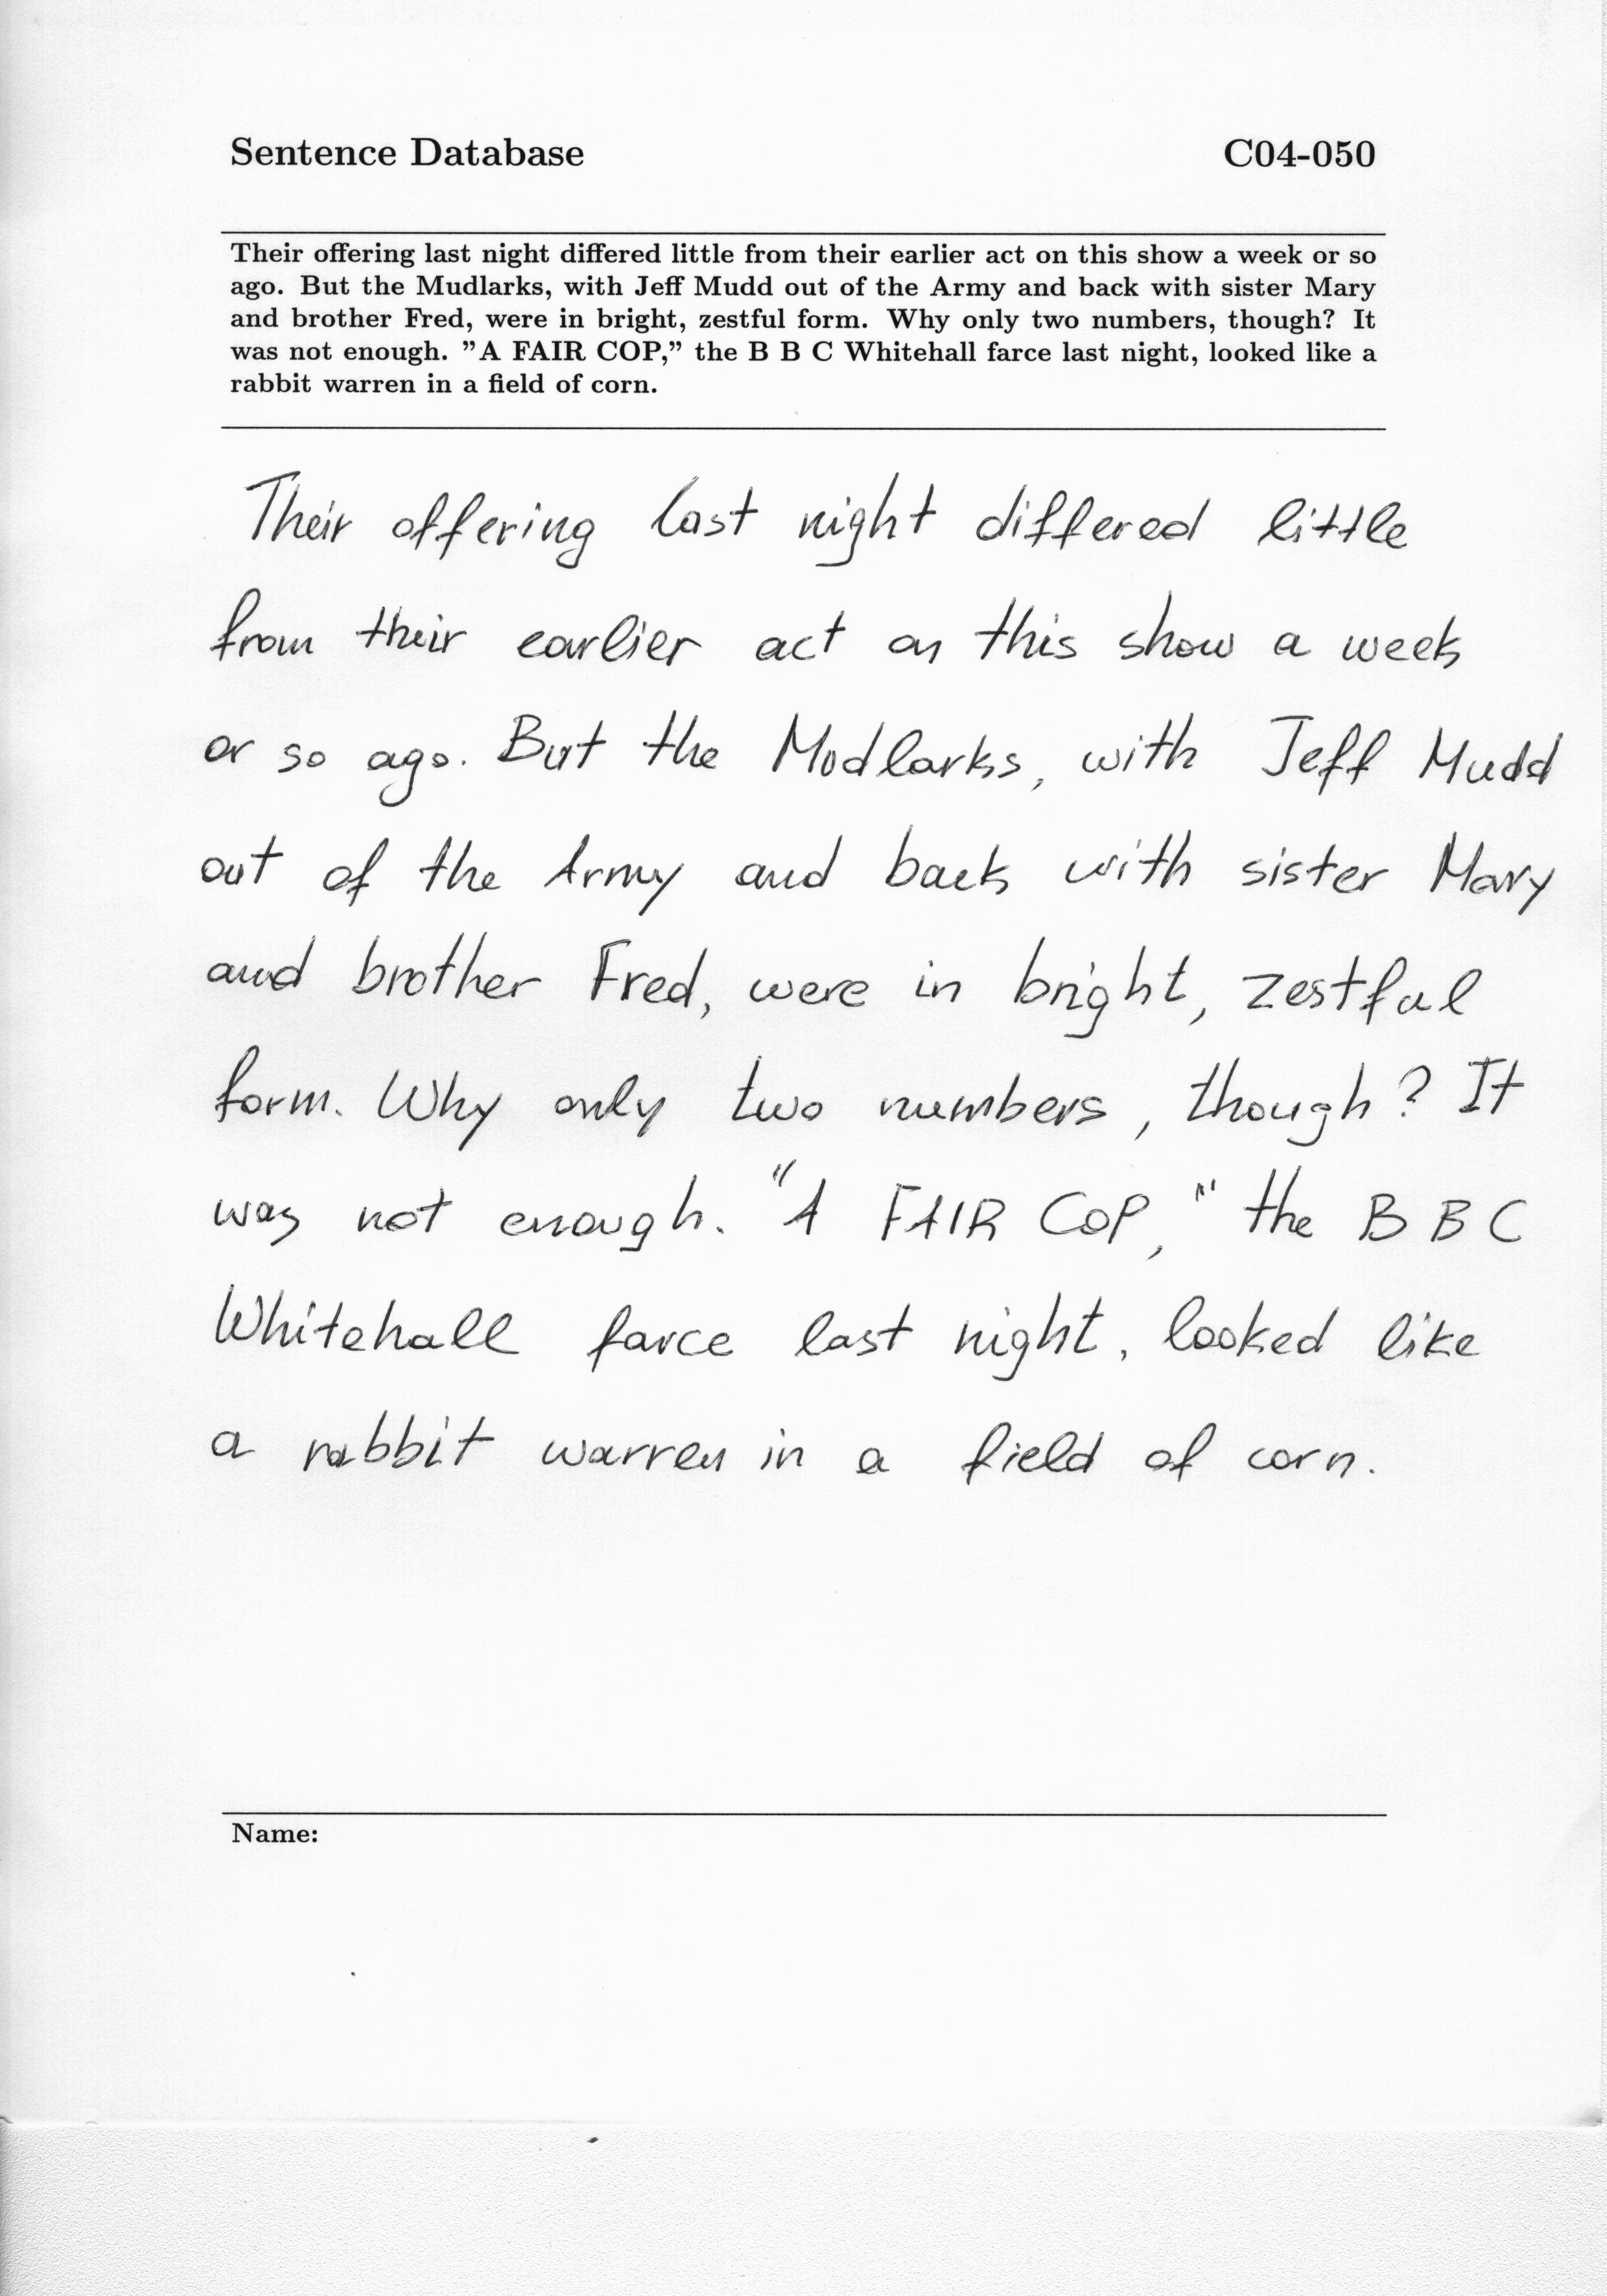 Sentence Database C04-050
Their offering last night differed little from their earlier act on this show a week or so
ago. But the Mudlarks, with Jeff Mudd out of the Army and back with sister Mary
and brother Fred, were in bright, zestful form. Why only two numbers, though? It
was not enough. ”A FAIR COP,” the B B C Whitehall farce last night, looked like a
rabbit warren in a field of corn.
Their offering last night differed little
from their earlier act on this show a week
or so ago. But the Modlarks, with Jeff Mudd
out of the Army and back with sister Mary
and brother Fred, were in bright, zestful
form. Why only two numbers, though? It
was not enough. "A FAIR COP," the B B C
Whitehall farce last night, looked like
a rabbit warren in a field of corn.
Name: